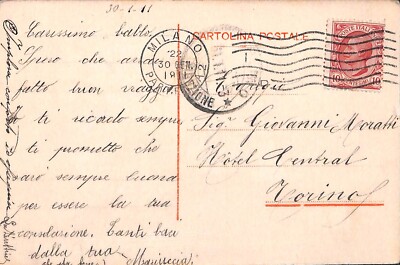 30-1-11
CARTOLINA POSTALE
MILANO
22
30 GEN.
1911
POSTE ITALIANE
10 10
Carissimo babbo,
Spero che avrai
fatto buon viaggio,
ti ricordo sempre
ti prometto che
sarò sempre buona
per essere la tua
consolazione. Tanti baci
dalla tua
Mariuccia
Sigr Giovanni Moratti
Hôtel Central
Torino